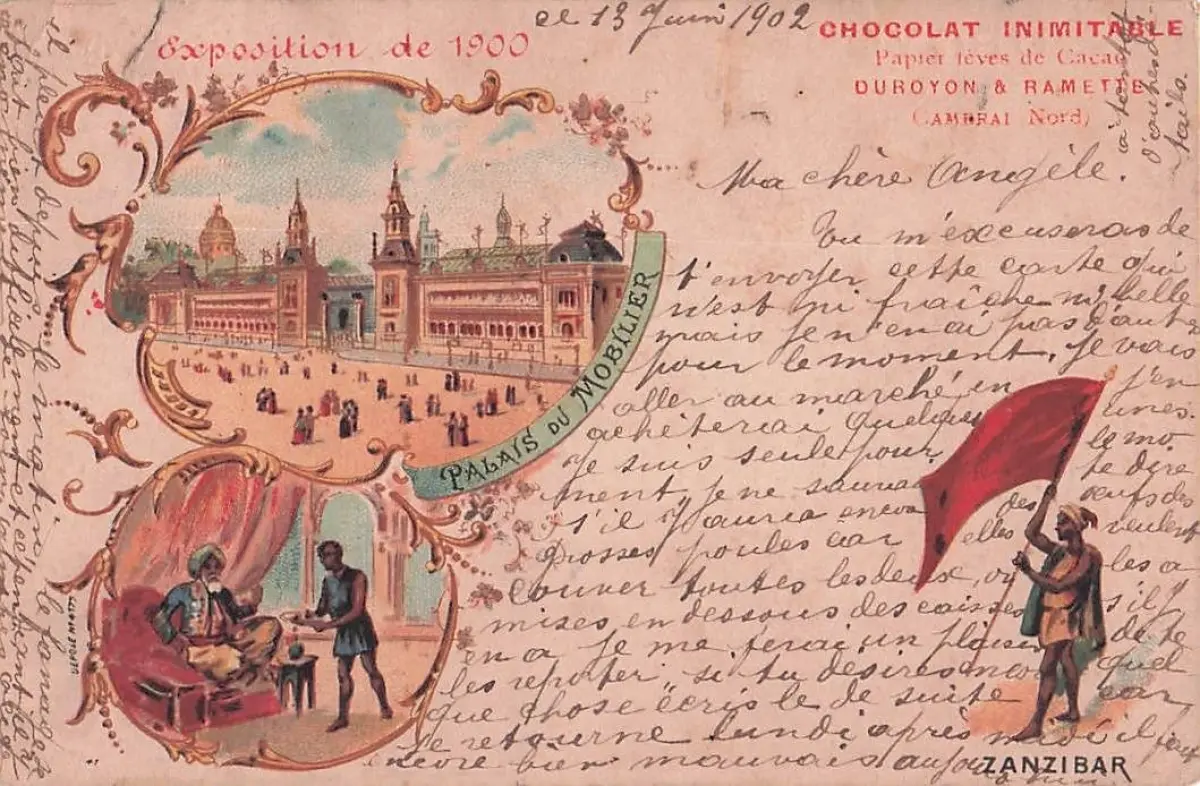 ce 13 Juin 1902
Exposition de 1900
CHOCOLAT INIMITABLE
Papier fèves de Cacao
DUROYON & RAMETTE
CAMBRAI (Nord)
Ma chère Angèle.
Tu m'excuseras de
t'envoyer cette carte qui
n'est ni fraîche ni belle
mais je n'en ai pas d'autre
pour le moment. Je vais
aller au marché, j'en
achèterai quelques unes
je suis seule pour le mo
ment, je ne saurai te dire
s'il y aura encore des œufs des
grosses poules car elles veulent
couver toutes les deux, on les a
mises en dessous des caisses s'il y
en a je me ferai un plaisir de te
les reporter, si tu désires quel
que chose écris le de suite car
je retourne lundi après midi il fait
encore bien mauvais aujourd'hui
PALAIS DU MOBILIER
ZANZIBAR
il pleut depuis le matin le fanage